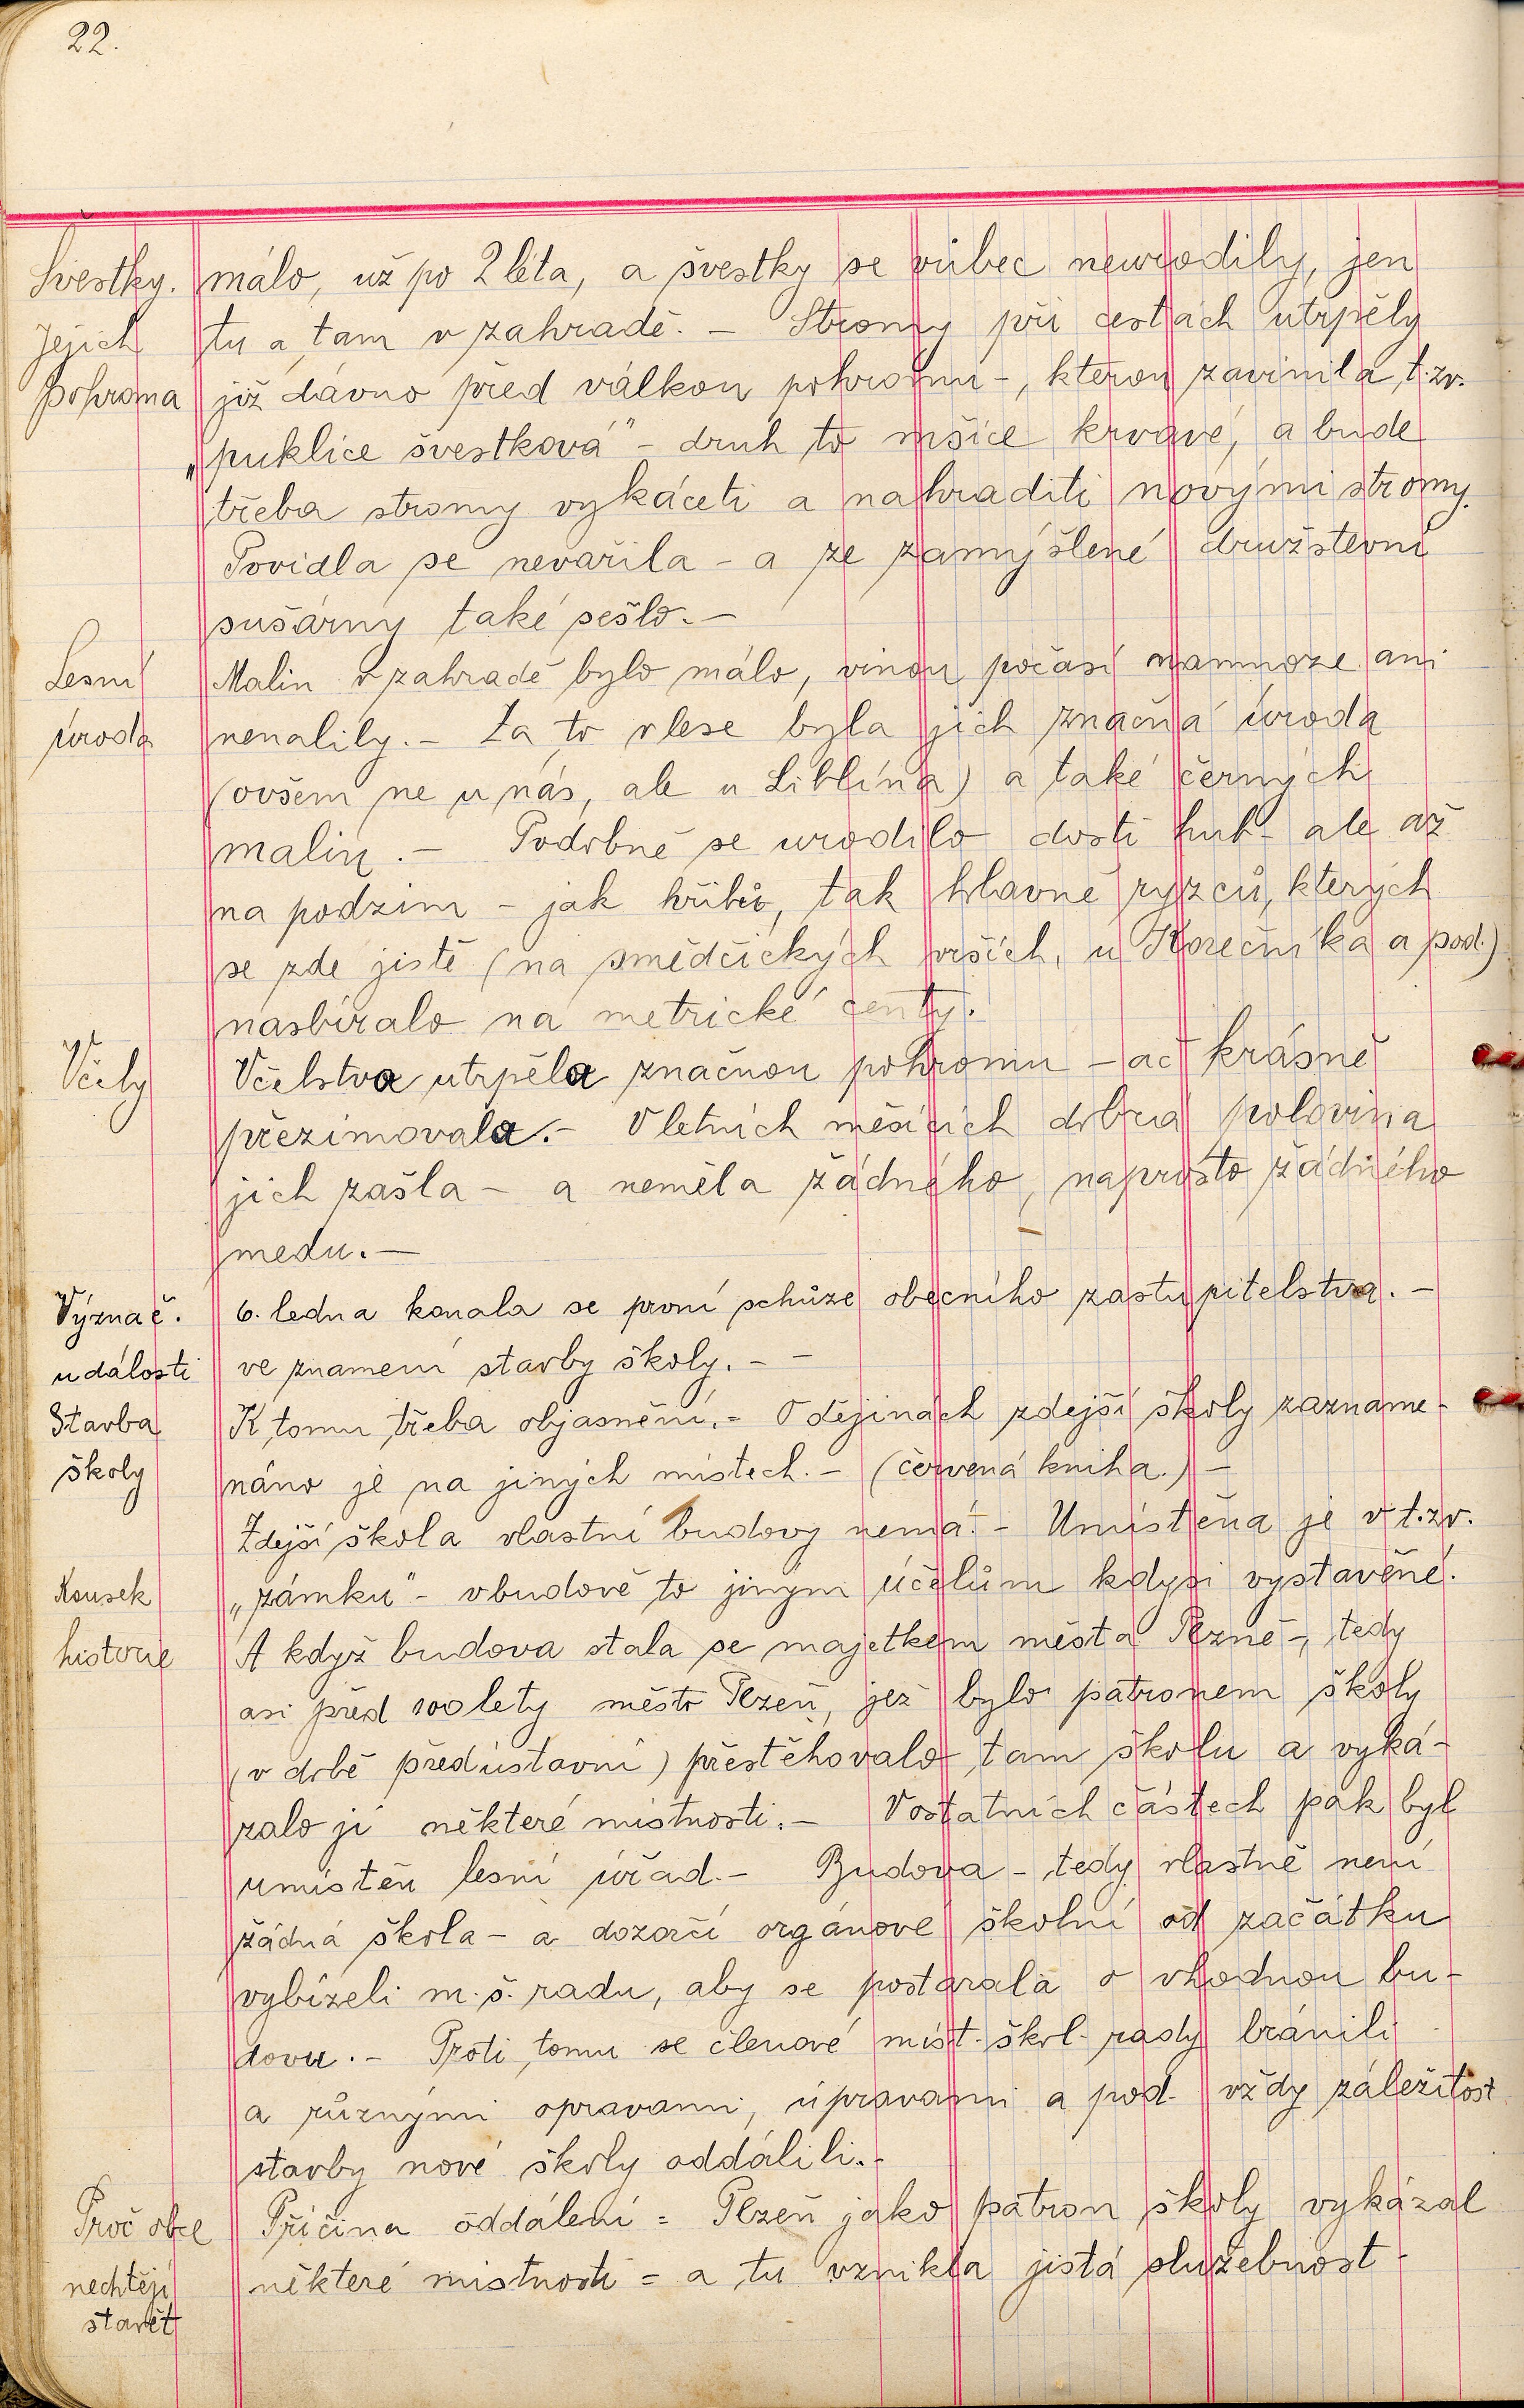 22.
Švestky.
Jejich
pohroma
málo, už po 2 léta, a švestky se vůbec neurodily, jen
tu a tam v zahradě. – Stromy při cestách utrpěly
již dávno před válkou pohromu –, kterou zavinila t. zv.
„puklice švestková" – druh to mšice krvavé, a bude
třeba stromy vykáceti a nahraditi novými stromy.
Povidla se nevařila – a ze zamýšlené družstevní
sušárny také sešlo. –
Lesní
úroda
Malin v zahradě bylo málo, vinou počasí namnoze ani
nenalily. – Za to v lese byla jich značná úroda
(ovšem ne u nás, ale u Liblína) a také černých
malin. – Podobně se urodilo dosti hub – ale až
na podzim – jak hřibů, tak hlavně ryzců, kterých
se zde jistě (na smědčických vrších, u Korečníka a pod.)
nasbíralo na metrické centy.
Včely
Včelstva utrpěla značnou pohromu – ač krásně
přezimovala. – V letních měsících dobrá polovina
jich zašla – a neměla žádného, naprosto žádného
medu. –
Význač.
události
Stavba
školy
6. ledna konala se první schůze obecního zastupitelstva. –
ve znamení stavby školy. – –
K tomu třeba objasnění. – O dějinách zdejší školy zazname-
náno je na jiných místech. – (červená kniha.) –
Zdejší škola vlastní budovy nemá. – Umístěna je v t. zv.
„zámku" – v budově to jiným účelům kdysi vystavěné.
Kousek
historie
A když budova stala se majetkem města Plzně –, tedy
asi před 100 lety město Plzeň, jež bylo patronem školy
(v době předústavní) přestěhovalo tam školu a vyká-
zalo jí některé místnosti. – V ostatních částech pak byl
umístěn lesní úřad. – Budova – tedy vlastně není
žádná škola – a dozorčí orgánové školní od začátku
vybízeli m. š. radu, aby se postarala o vhodnou bu-
dovu. – Proti tomu se členové míst. škol. rady bránili
a různými opravami, úpravami a pod. vždy záležitost
stavby nové školy oddálili. –
Proč obce
nechtějí
stavět
Příčina oddálení = Plzeň jako patron školy vykázal
některé místnosti = a tu vznikla jistá služebnost –